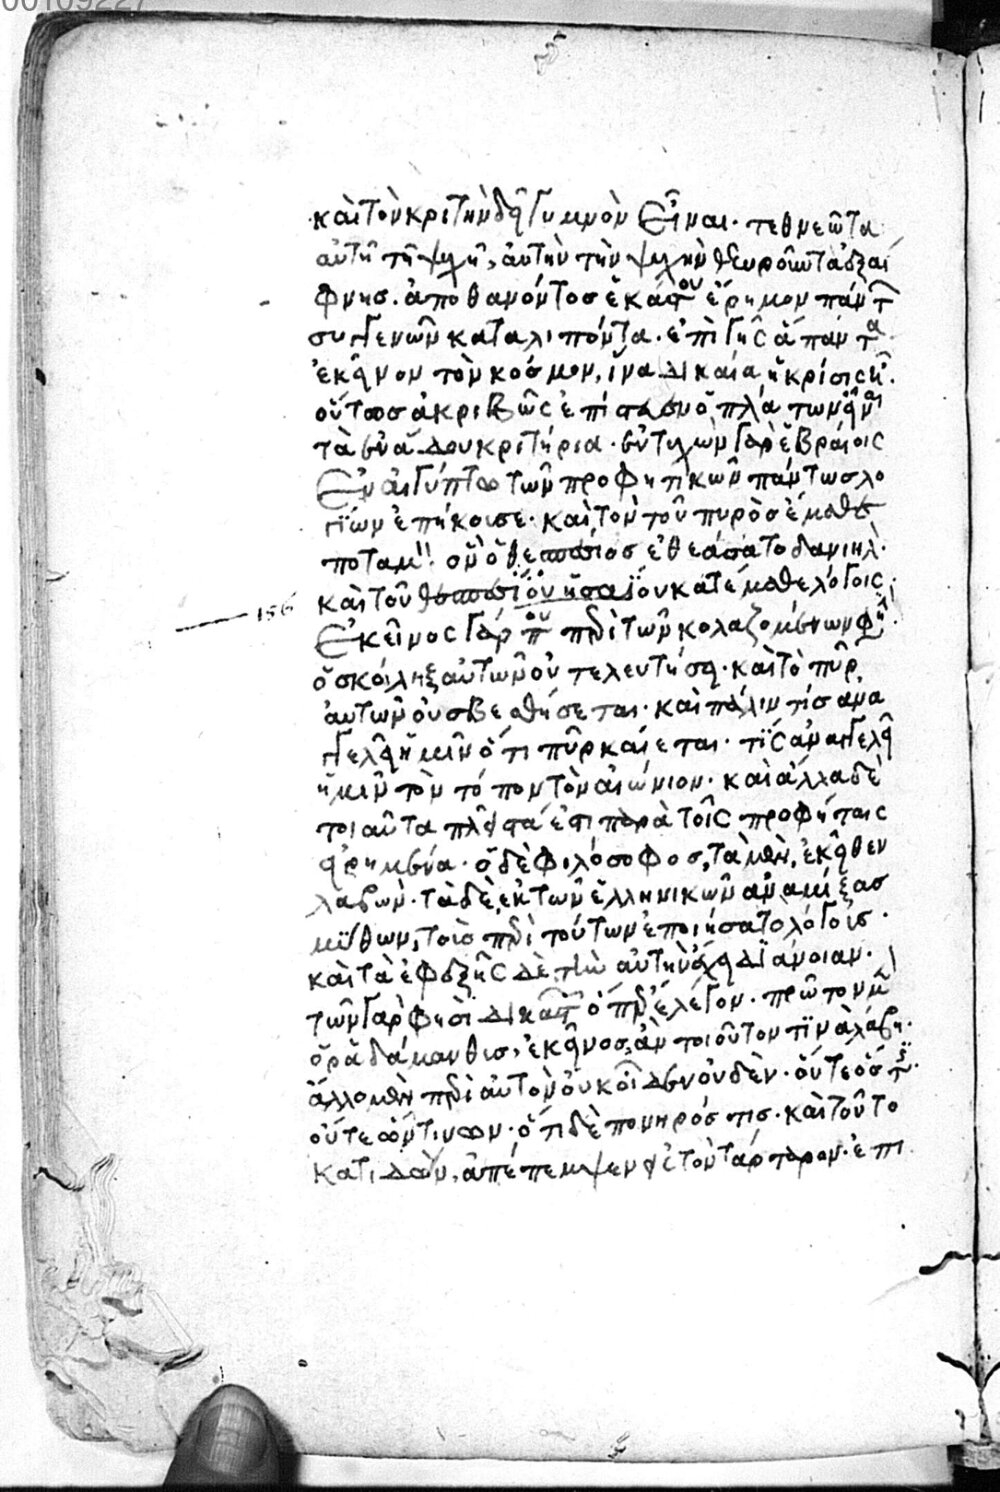 00109227
καὶ τὸν κριτὴν δεῖ γυμνὸν εἶναι· τεθνεῶτα
αὐτῇ τῇ ψυχῇ, αὐτὴν τὴν ψυχὴν θεωροῦντα ἐξαί
φνης ἀποθανόντος ἑκάστου ἔρημον πάντων
συγγενῶν καταλιπόντα· ἐπὶ γῆς ἅπαντα
ἐκεῖνον τὸν κόσμον, ἵνα δικαία ἡ κρίσις ᾖ·
οὕτως ἀκριβῶς ἐπίσταται ὁ πλάτων εἶναι
τὰ ἐν ᾅδου κριτήρια· ἐντυχὼν γὰρ ἑβραίοις
ἐν αἰγύπτω τῶν προφητικῶν πάντως λο
γίων ἐπήκουσε· καὶ τὸν τοῦ πυρὸς ἔμαθε
ποταμὸν ὃν ὁ θεσπέσιος ἐθεάσατο δανιήλ·
καὶ τοῦ θεσπεσίου ἡσαΐου κατέμαθε λόγοις·
156
ἐκεῖνος γάρ που περὶ τῶν κολαζομένων φησὶν
ὁ σκώληξ αὐτῶν οὐ τελευτήσει· καὶ τὸ πῦρ
αὐτῶν οὐ σβεσθήσεται· καὶ πάλιν τίς ανα
γγελεῖ ἡμῖν ὅτι πῦρ καίεται· τίς αναγγελεῖ
ἡμῖν τὸν τόπον τὸν αἰώνιον· καὶ ἄλλα δὲ
τοιαῦτα πλεῖστα ἐστι παρὰ τοῖς προφήταις
εἰρημένα· ὁ δὲ φιλόσοφος, τὰ μὲν, ἐκεῖθεν
λαβών· τὰ δὲ, ἐκ τῶν ἑλληνικῶν αναμίξας
μύθων, τοὺς περὶ τούτων ἐποιήσατο λόγους·
καὶ τὰ ἐφεξῆς δὲ τὴν αὐτὴν ἔχει διάνοιαν·
τῶν γὰρ φησὶ δικαστῶν ὧν περ ἔλεγον· πρῶτον μὲν
ὁ ῥαδάμανθις, ἐκεῖνος, ἂν τοιοῦτον τινὰ λάβη·
ἄλλο μὲν περὶ αὐτοῦ οὐκ οἶδεν οὐδέν· οὔτε ὅστις·
οὔτε ὧντινων· ὅτι δὲ πονηρός τις· καὶ τοῦτο
κατιδών, ἀπέπεμψεν εἰς τὸν τάρταρον· ἐπι